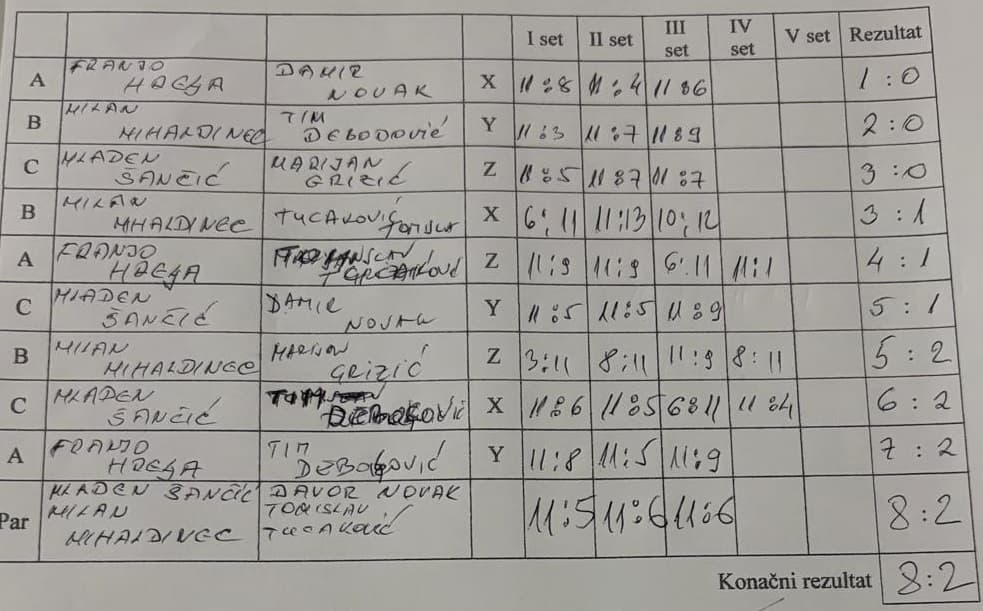 I set II set III set IV set V set Rezultat
A FRANJO HREGA DAMIR NOVAK X 11:8 11:4 11:6 1:0
B MILAN MIHALDINEC TIM DEBODOVIĆ Y 11:3 11:7 11:9 2:0
C MLADEN ŠANČIĆ MARIJAN GRIZIĆ Z 11:5 11:7 11:7 3:0
B MILAN MIHALDINEC TUCAKOVIĆ X 6:11 11:13 10:12 3:1
A FRANJO HREGA Z 11:9 11:9 6:11 11:1 4:1
C MLADEN ŠANČIĆ DAMIR NOVAK Y 11:5 11:5 11:9 5:1
B MILAN MIHALDINEC MARIJAN GRIZIĆ Z 3:11 8:11 11:9 8:11 5:2
C MLADEN ŠANČIĆ X 11:6 11:5 6:11 11:4 6:2
A FRANJO HREGA TIM Y 11:8 11:5 11:9 7:2
Par MLADEN ŠANČIĆ MILAN MIHALDINEC DAVOR NOVAK TOMISLAV TUCAKOVIĆ 11:5 11:6 11:6 8:2
Konačni rezultat 8:2